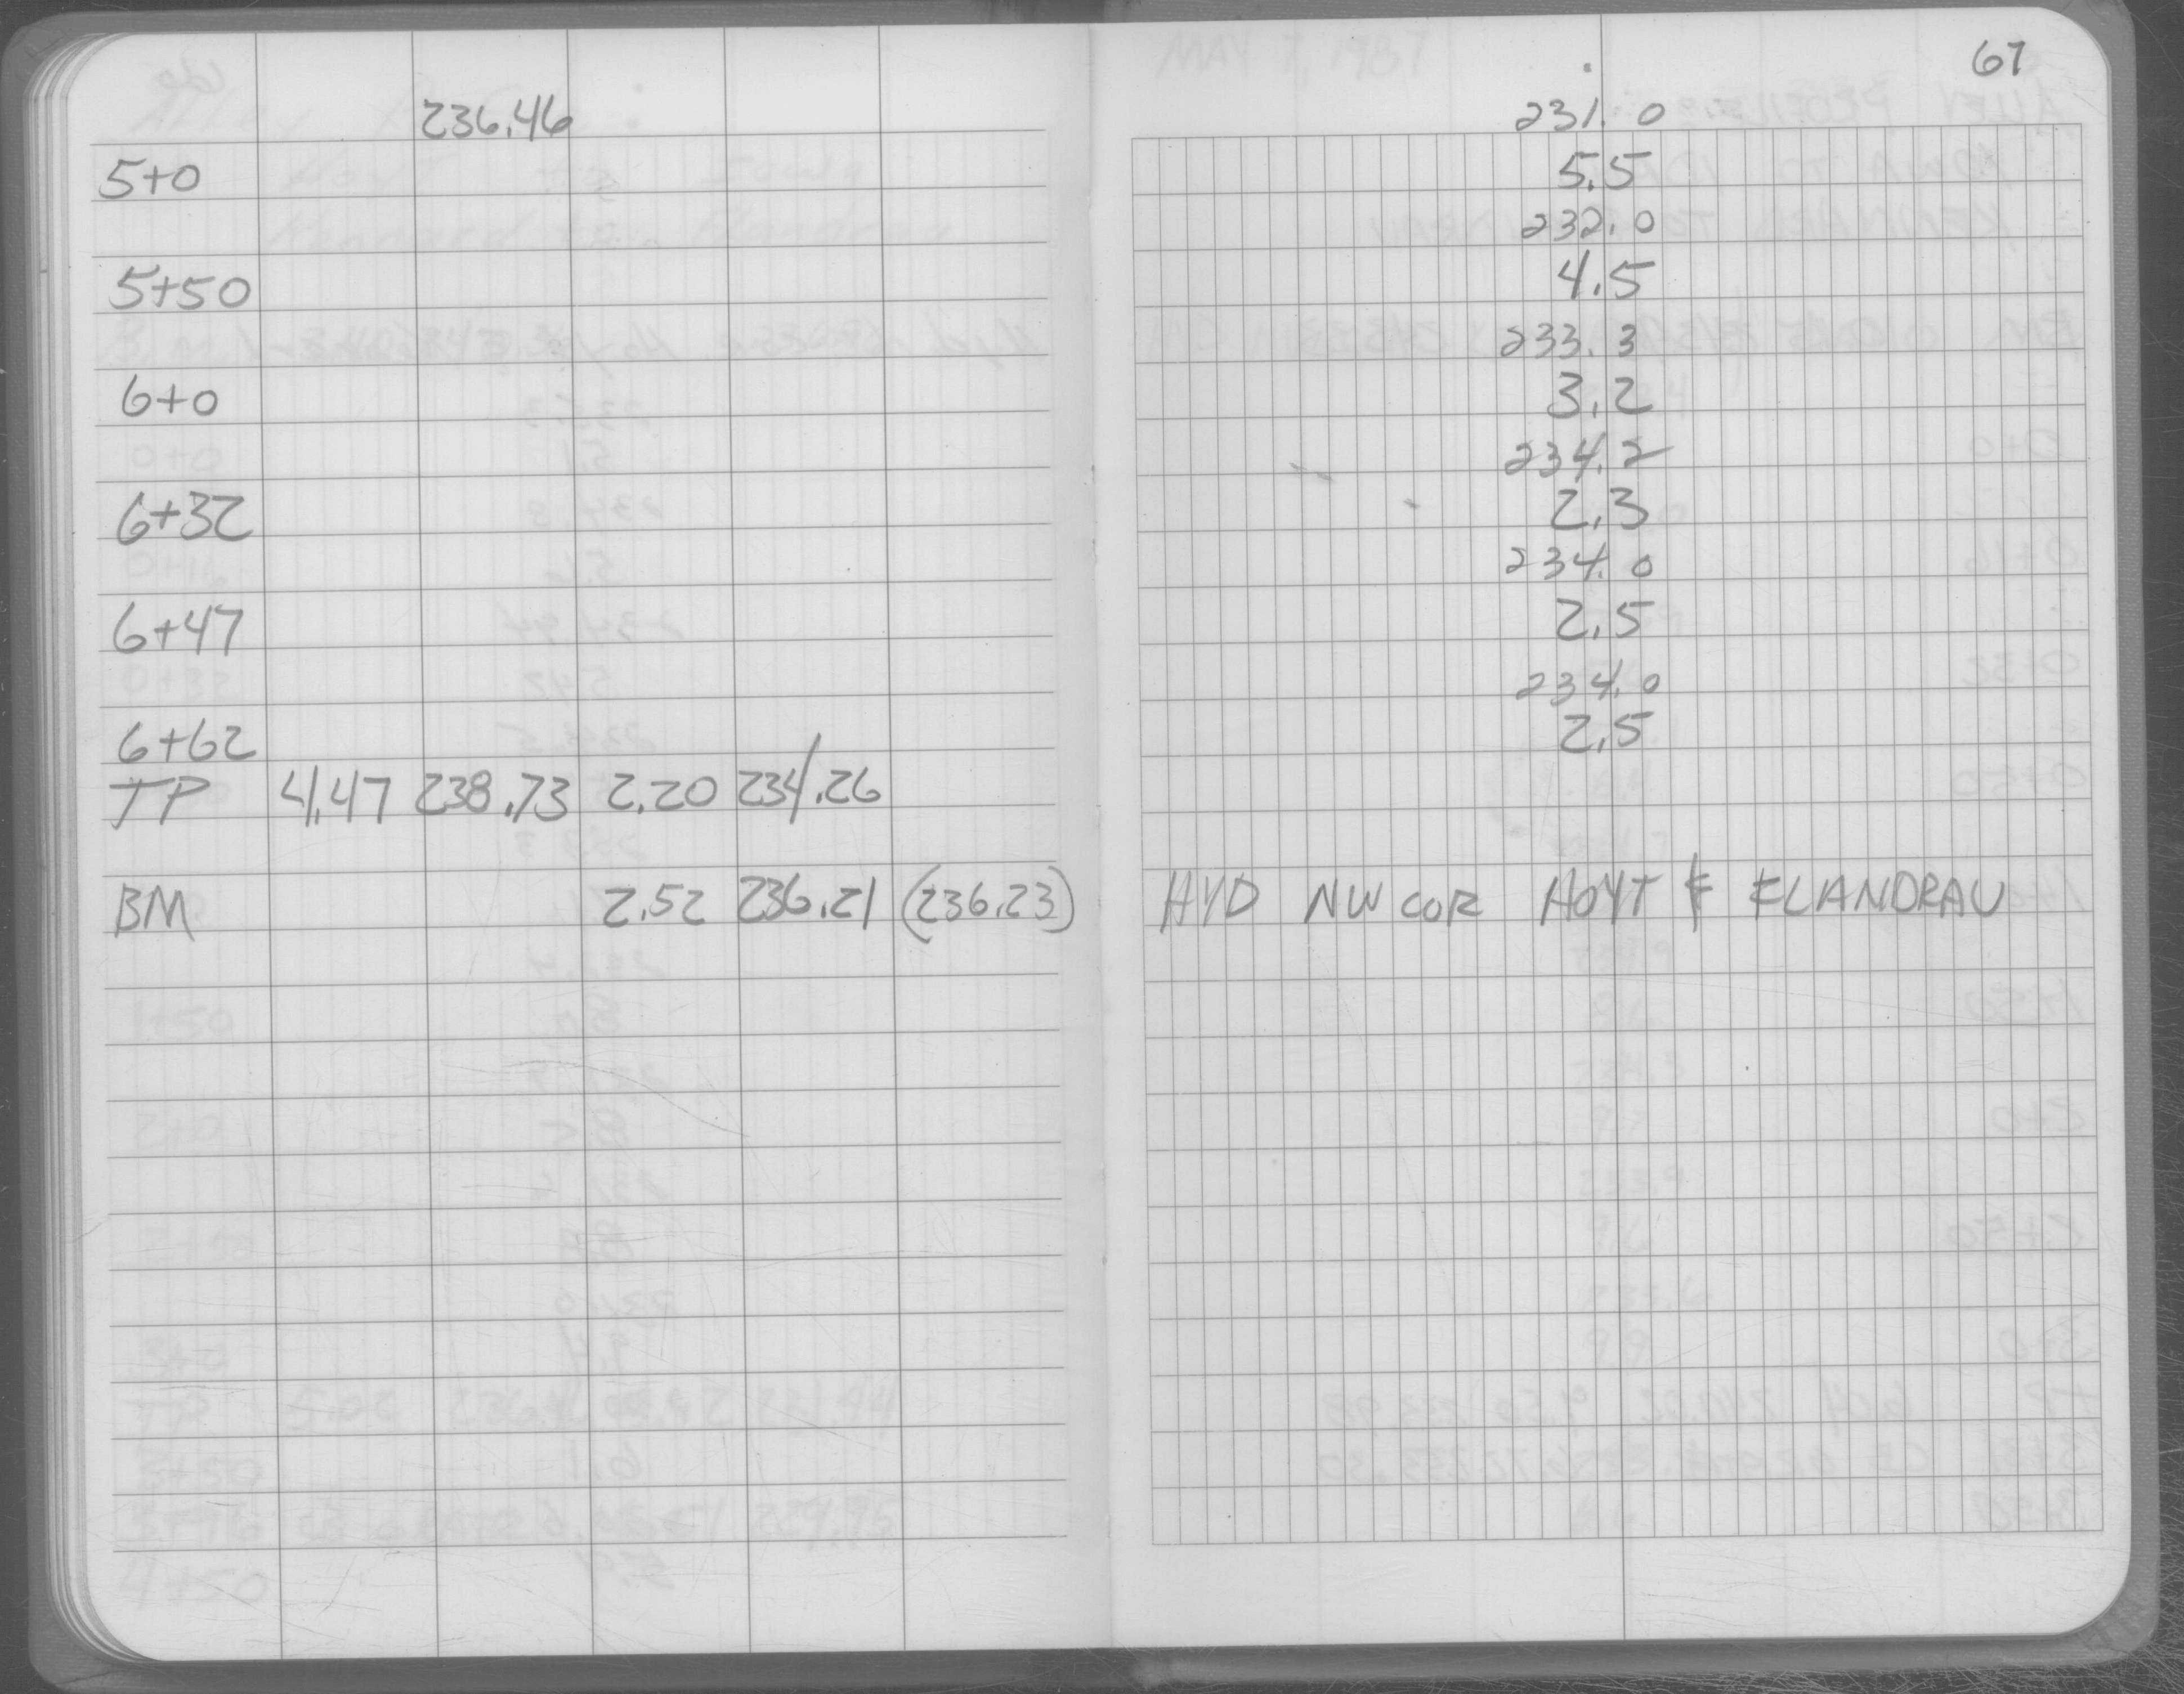 67
236.46 231.0
5+0 5.5
232.0
5+50 4.5
233.3
6+0 3.2
234.2
6+32 2.3
234.0
6+47 2.5
234.0
6+62 2.5
TP 4.47 238.73 2.20 234.26
BM 2.52 236.21 (236.23) HYD NW COR HOYT & FLANDRAU